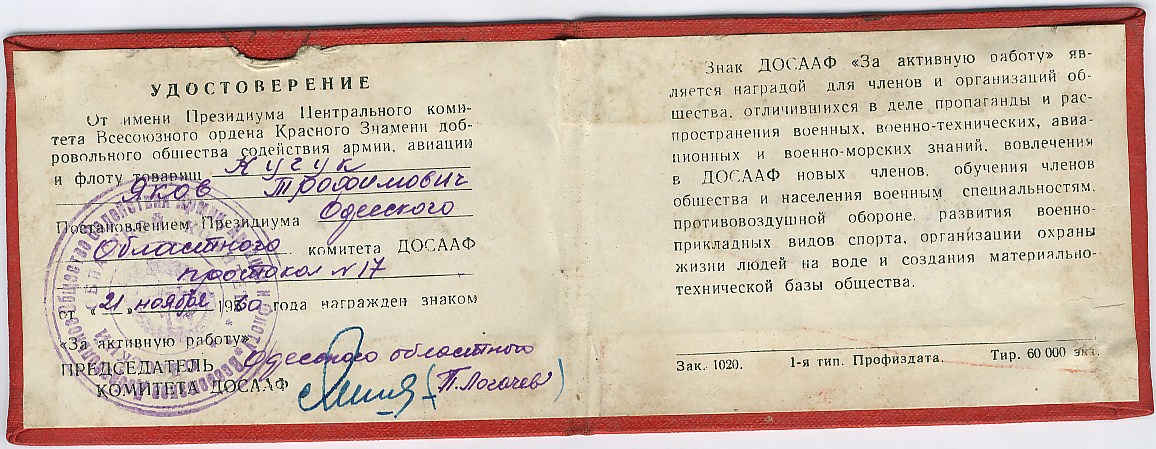 УДОСТОВЕРЕНИЕ
От имени Президиума Центрального коми-
тета Всесоюзного ордена Красного Знамени доб-
ровольного общества содействия армии, авиации
и флоту товарищ Кучук
Яков Трофимович
Постановлением Президиума Одесского
Областного комитета ДОСААФ
протокол N 17
от «21» ноября 19 года награжден знаком
«За активную работу»
ПРЕДСЕДАТЕЛЬ Одесского областного
КОМИТЕТА ДОСААФ (П. Логачев)
Знак ДОСААФ «За активную работу» яв-
ляется наградой для членов и организаций об-
щества, отличившихся в деле пропаганды и рас-
пространения военных, военно-технических, авиа-
ционных и военно-морских знаний, вовлечения
в ДОСААФ новых членов, обучения членов
общества и населения военным специальностям,
противовоздушной обороне, развития военно-
прикладных видов спорта, организации охраны
жизни людей на воде и создания материально-
технической базы общества.
Зак. 1020. 1-я тип. Профиздата. Тир. 60 000 экз.